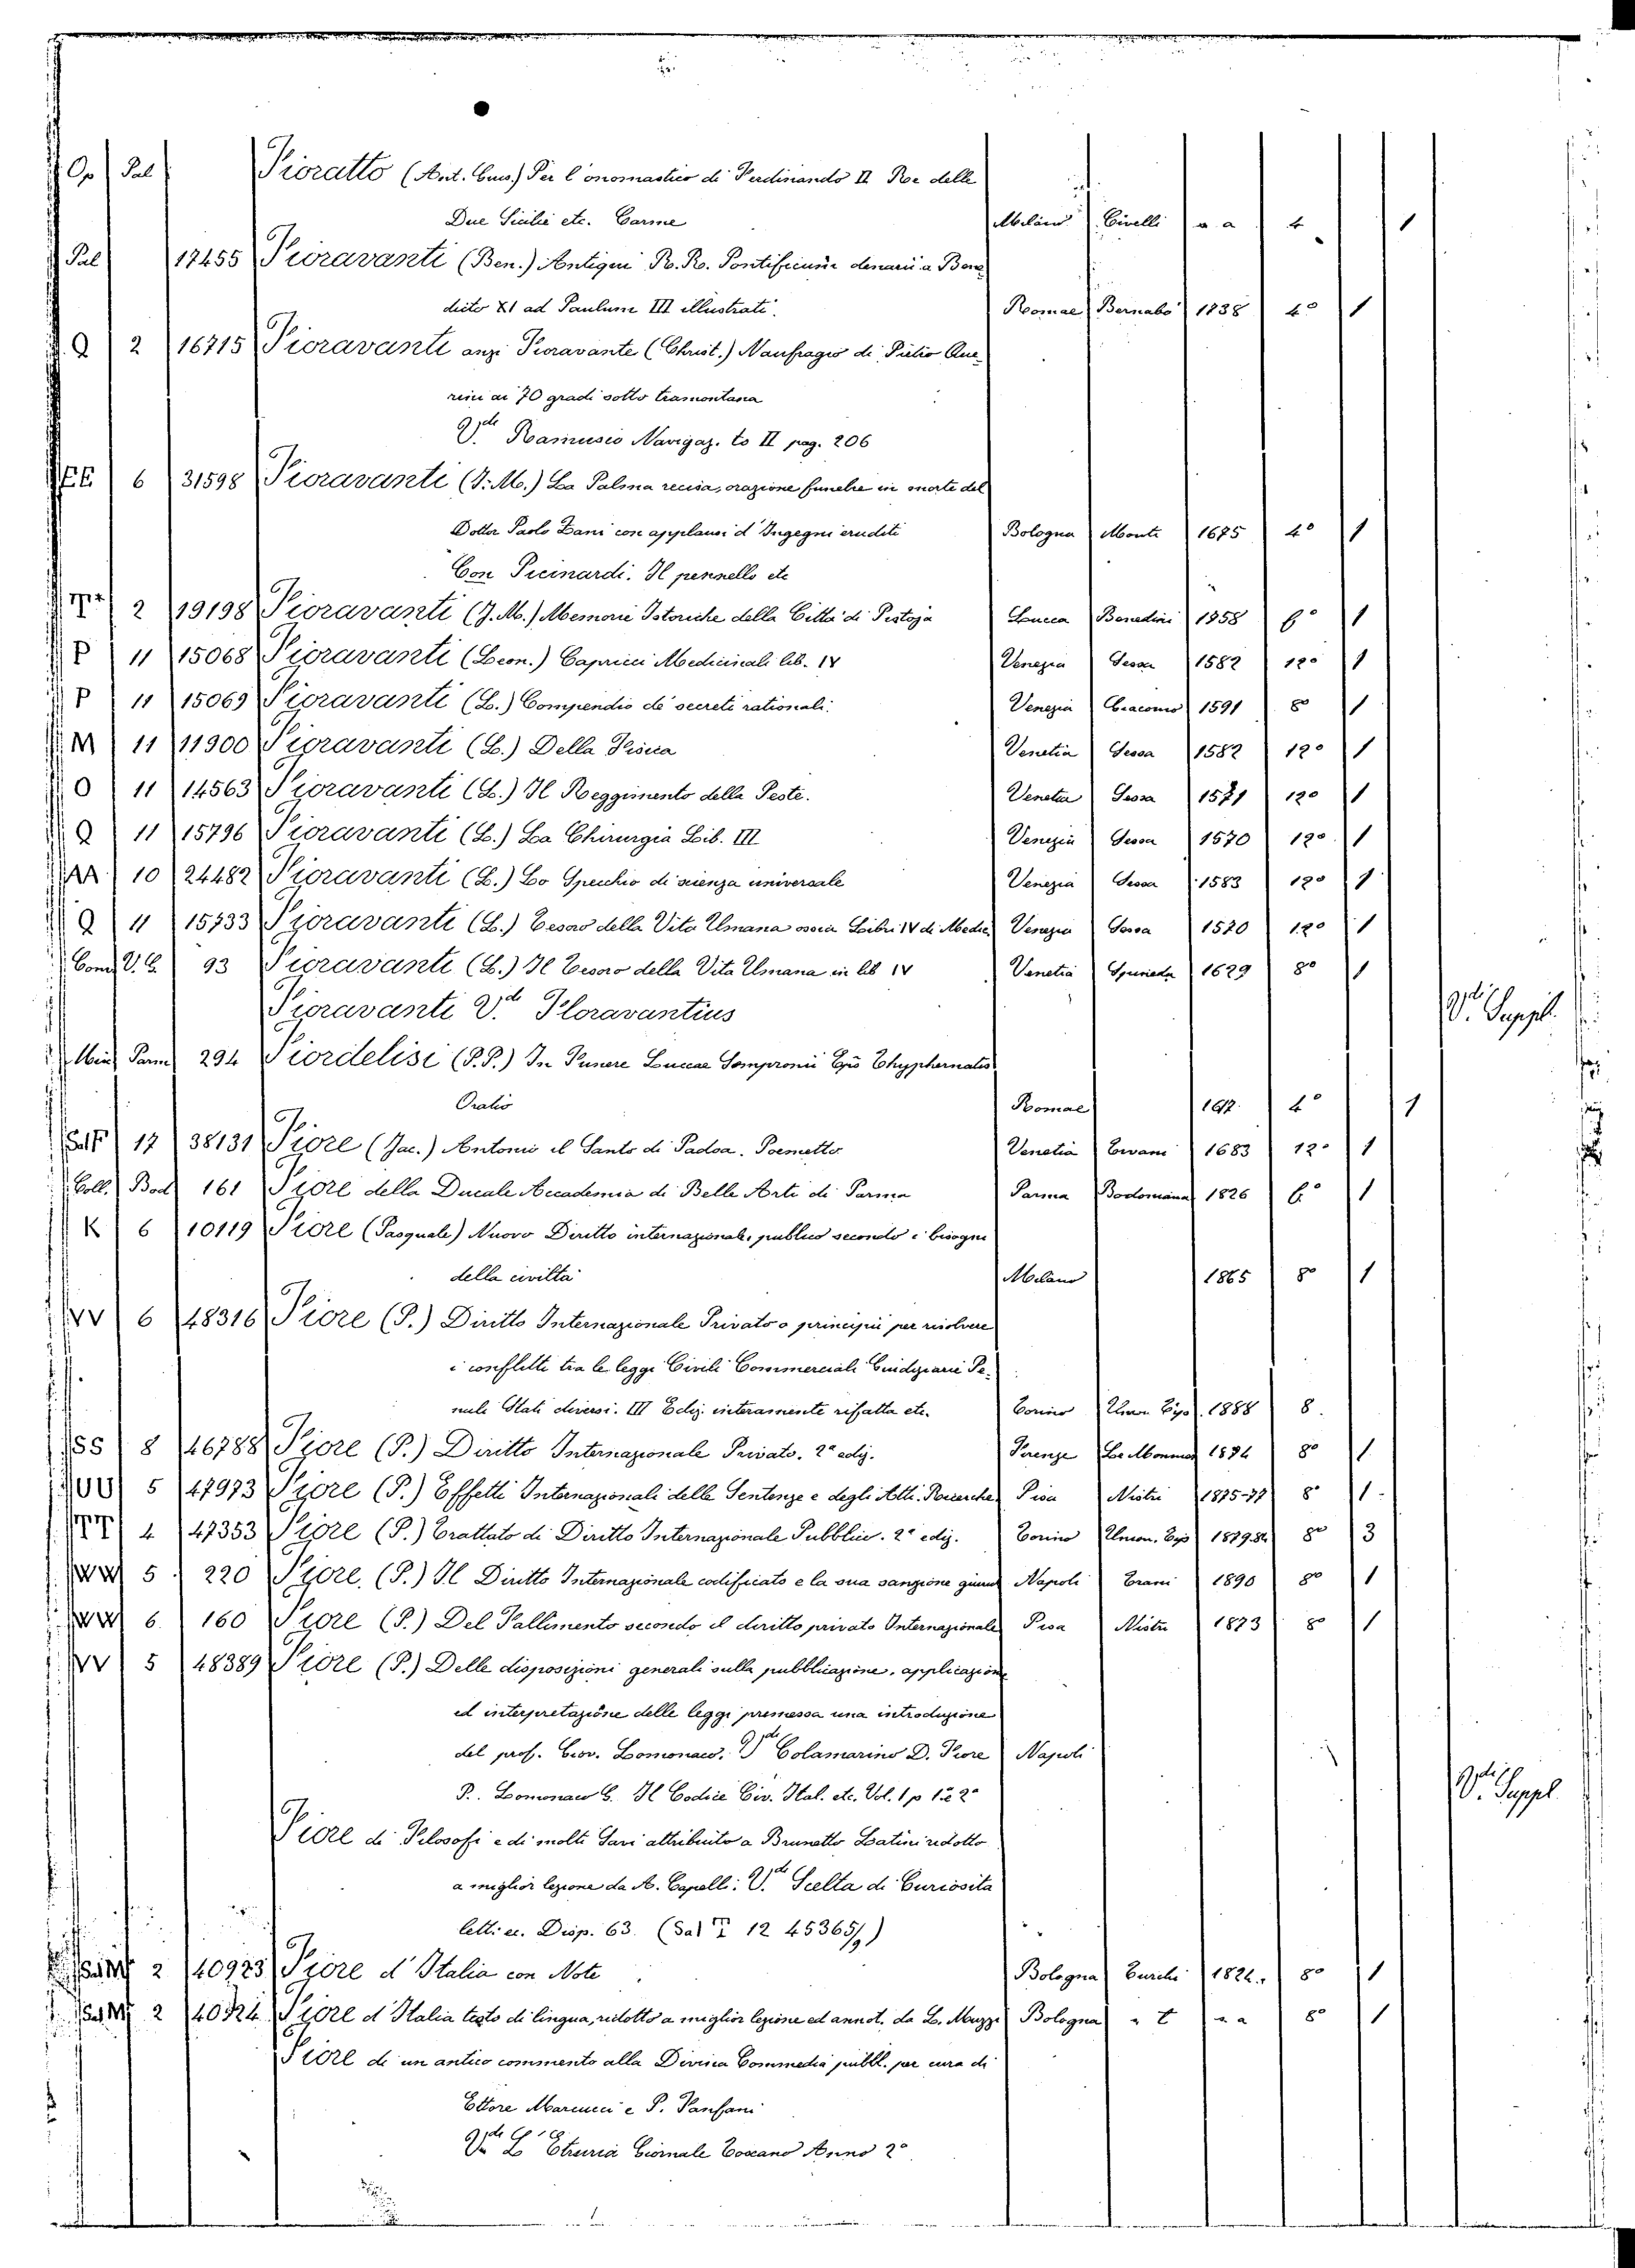 Op Pal Fioratto (Ant. Gius.) Per l'onomastico di Ferdinando II Re delle
Due Sicilie etc. Carme Milano Civelli s a 4 1
Pal 17455 Fioravanti (Ben.) Antiqui R. R. Pontificum denarii a Bene
dicto XI ad Paulum III illustrati. Romae Bernabò 1738 4° 1
Q 2 16715 Fioravanti anzi Fioravante (Christ.) Naufragio di Pietro Que
rini ai 70 gradi sotto tramontana
V.de Ramusio Navigaz. to II pag. 206
EE 6 31598 Fioravanti (J. M.) La Palma recisa, orazione funebre in morte del
Dottor Paolo Zani con applausi d'Ingegni eruditi Bologna Monti 1675 4° 1
Con Picinardi. Il pennello etc
2 19198 Fioravanti (J. M.) Memorie Istoriche della Città di Pistoja Lucca Benedini 1758 f° 1
P 11 15068 Fioravanti (Leon.) Capricci Medicinali lib. IV Venezia Sessa 1582 12° 1
P 11 15069 Fioravanti (L.) Compendio de secreti rationali. Venezia Giacomo 1591 8° 1
M 11 11900 Fioravanti (L.) Della Fisica Venetia Sessa 1582 12° 1
O 11 14563 Fioravanti (L.) Il Reggimento della Peste. Venetia Sessa 1571 12° 1
Q 11 15796 Fioravanti (L.) La Chirurgia Lib. III Venezia Sessa 1570 12° 1
AA 10 24482 Fioravanti (L.) Lo Specchio di scienza universale Venezia Sessa 1583 12° 1
Q 11 15733 Fioravanti (L.) Tesoro della Vita Umana ossia Libri IV di Medic. Venezia Sessa 1570 12° 1
Com. V. C. 93 Fioravanti (L.) Il Tesoro della Vita Umana in lib IV Venetia Spineda 1629 8° 1
Fioravanti V.de Floravantius V.di Suppl.
Misc Parm 294 Fiordelisi (P. P.) In Funere Luccae Sempronii Epis Thyphernatis
Oratio Romae 4° 1
Sal F 17 38131 Fiore (Jac.) Antonio il Santo di Padoa. Poemetto Venetia Tivani 1683 12° 1
Coll. Bod 161 Fiore della Ducale Accademia di Belle Arti di Parma Parma Bodoniana 1826 f.° 1
K 6 10119 Fiore (Pasquale) Nuovo Diritto internazionale, publico secondo i bisogni
della civiltà Milano 1865 8° 1
VV 6 48316 Fiore (P.) Diritto Internazionale Privato o principii per risolvere
i conflitti tra le legge Civili Commerciali Giudiziarie Pe.
nali Stati diversi. III Ediz. interamente rifatta etc. Torino Union. Tip. 1888 8.
SS 8 46788 Fiore (P.) Diritto Internazionale Privato. 2a ediz. Firenze Le Monnier 1874 8° 1
UU 5 47973 Fiore (P.) Effetti Internazionali delle Sentenze e degli Atti. Ricerche Pisa Nistri 1875-77 8° 1
TT 4 47353 Fiore (P.) Trattato di Diritto Internazionale Pubblico. 2a ediz. Torino Union. Tip 1879.84 8° 3
WW 5 220 Fiore. (P.) Il Diritto Internazionale codificato e la sua sanzione giurid Napoli Trani 1890 8° 1
WW 6. 160 Fiore (P.) Del Fallimento secondo il diritto privato Internazionale Pisa Nistri 1873 8° 1
VV 5 48389 Fiore (P.) Delle disposizioni generali sulla pubblicazione, applicazione
ed interpretazione delle leggi premessa una introduzione
del prof. Giov. Lomonaco. V.de Colamarino D. Fiore Napoli
P.. Lomonaco G. Il Codice Civ. Ital. etc. Vol. 1 p 1a e 2a V.di Suppl
Fiore di Filosofi e di molti Savi attribuito a Brunetto Latini ridotto
a miglior lezione da A. Capelli: V.de Scelta di Curiosità
lett. ec. Disp. 63. (Sal T 12 45365/9)
Sal M 2 40923 Fiore d'Italia con Note Bologna Turchi 1824. 8° 1
Sal M 2 40924 Fiore d'Italia testo di lingua, ridotto a miglior lezione ed annot. da L. Muzzi Bologna s t s a 8° 1
Fiore di un antico commento alla Divina Commedia pubbl. per cura di
Ettore Marcucci e P. Fanfani
V.de L'Etruria Giornale Toscano Anno 2°